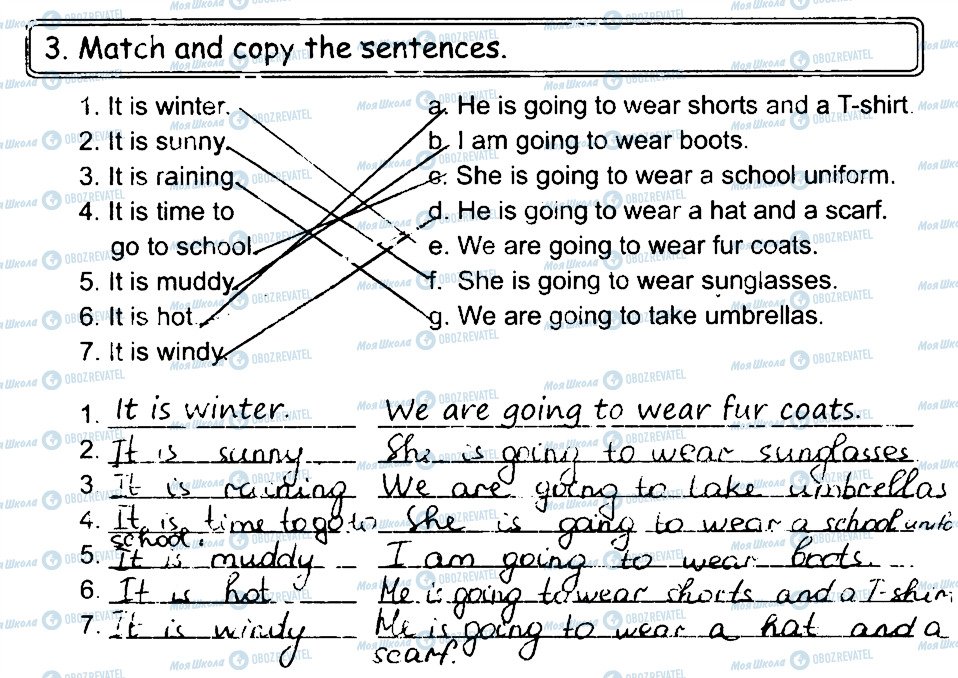 3. Match and copy the sentences.
1. It is winter. a. He is going to wear shorts and a T-shirt.
2. It is sunny. b. I am going to wear boots.
3. It is raining. c. She is going to wear a school uniform.
4. It is time to d. He is going to wear a hat and a scarf.
go to school. e. We are going to wear fur coats.
5. It is muddy. f. She is going to wear sunglasses.
6. It is hot. g. We are going to take umbrellas.
7. It is windy.
1. It is winter. We are going to wear fur coats.
2. It is sunny She is going to wear sunglasses
3. It is raining We are going to take umbrellas
4. It is time to go to She is going to wear a school unifo
school.
5. It is muddy I am going to wear boots.
6. It is hot He is going to wear shorts and a T-shirt
7. It is windy He is going to wear a hat and a
scarf.
МояШкола OBOZREVATEL